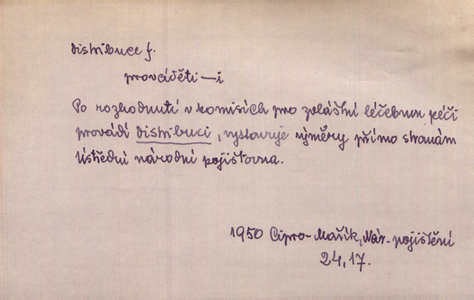 distribuce f.
prováděti —i
Po rozhodnutí v komisích pro zvláštní léčebnou péči
provádí distribuci, vystavuje výměry přímo stranám
Ústřední národní pojišťovna.
1950 Cipro-Mařík, Nár. pojištění
24,17.